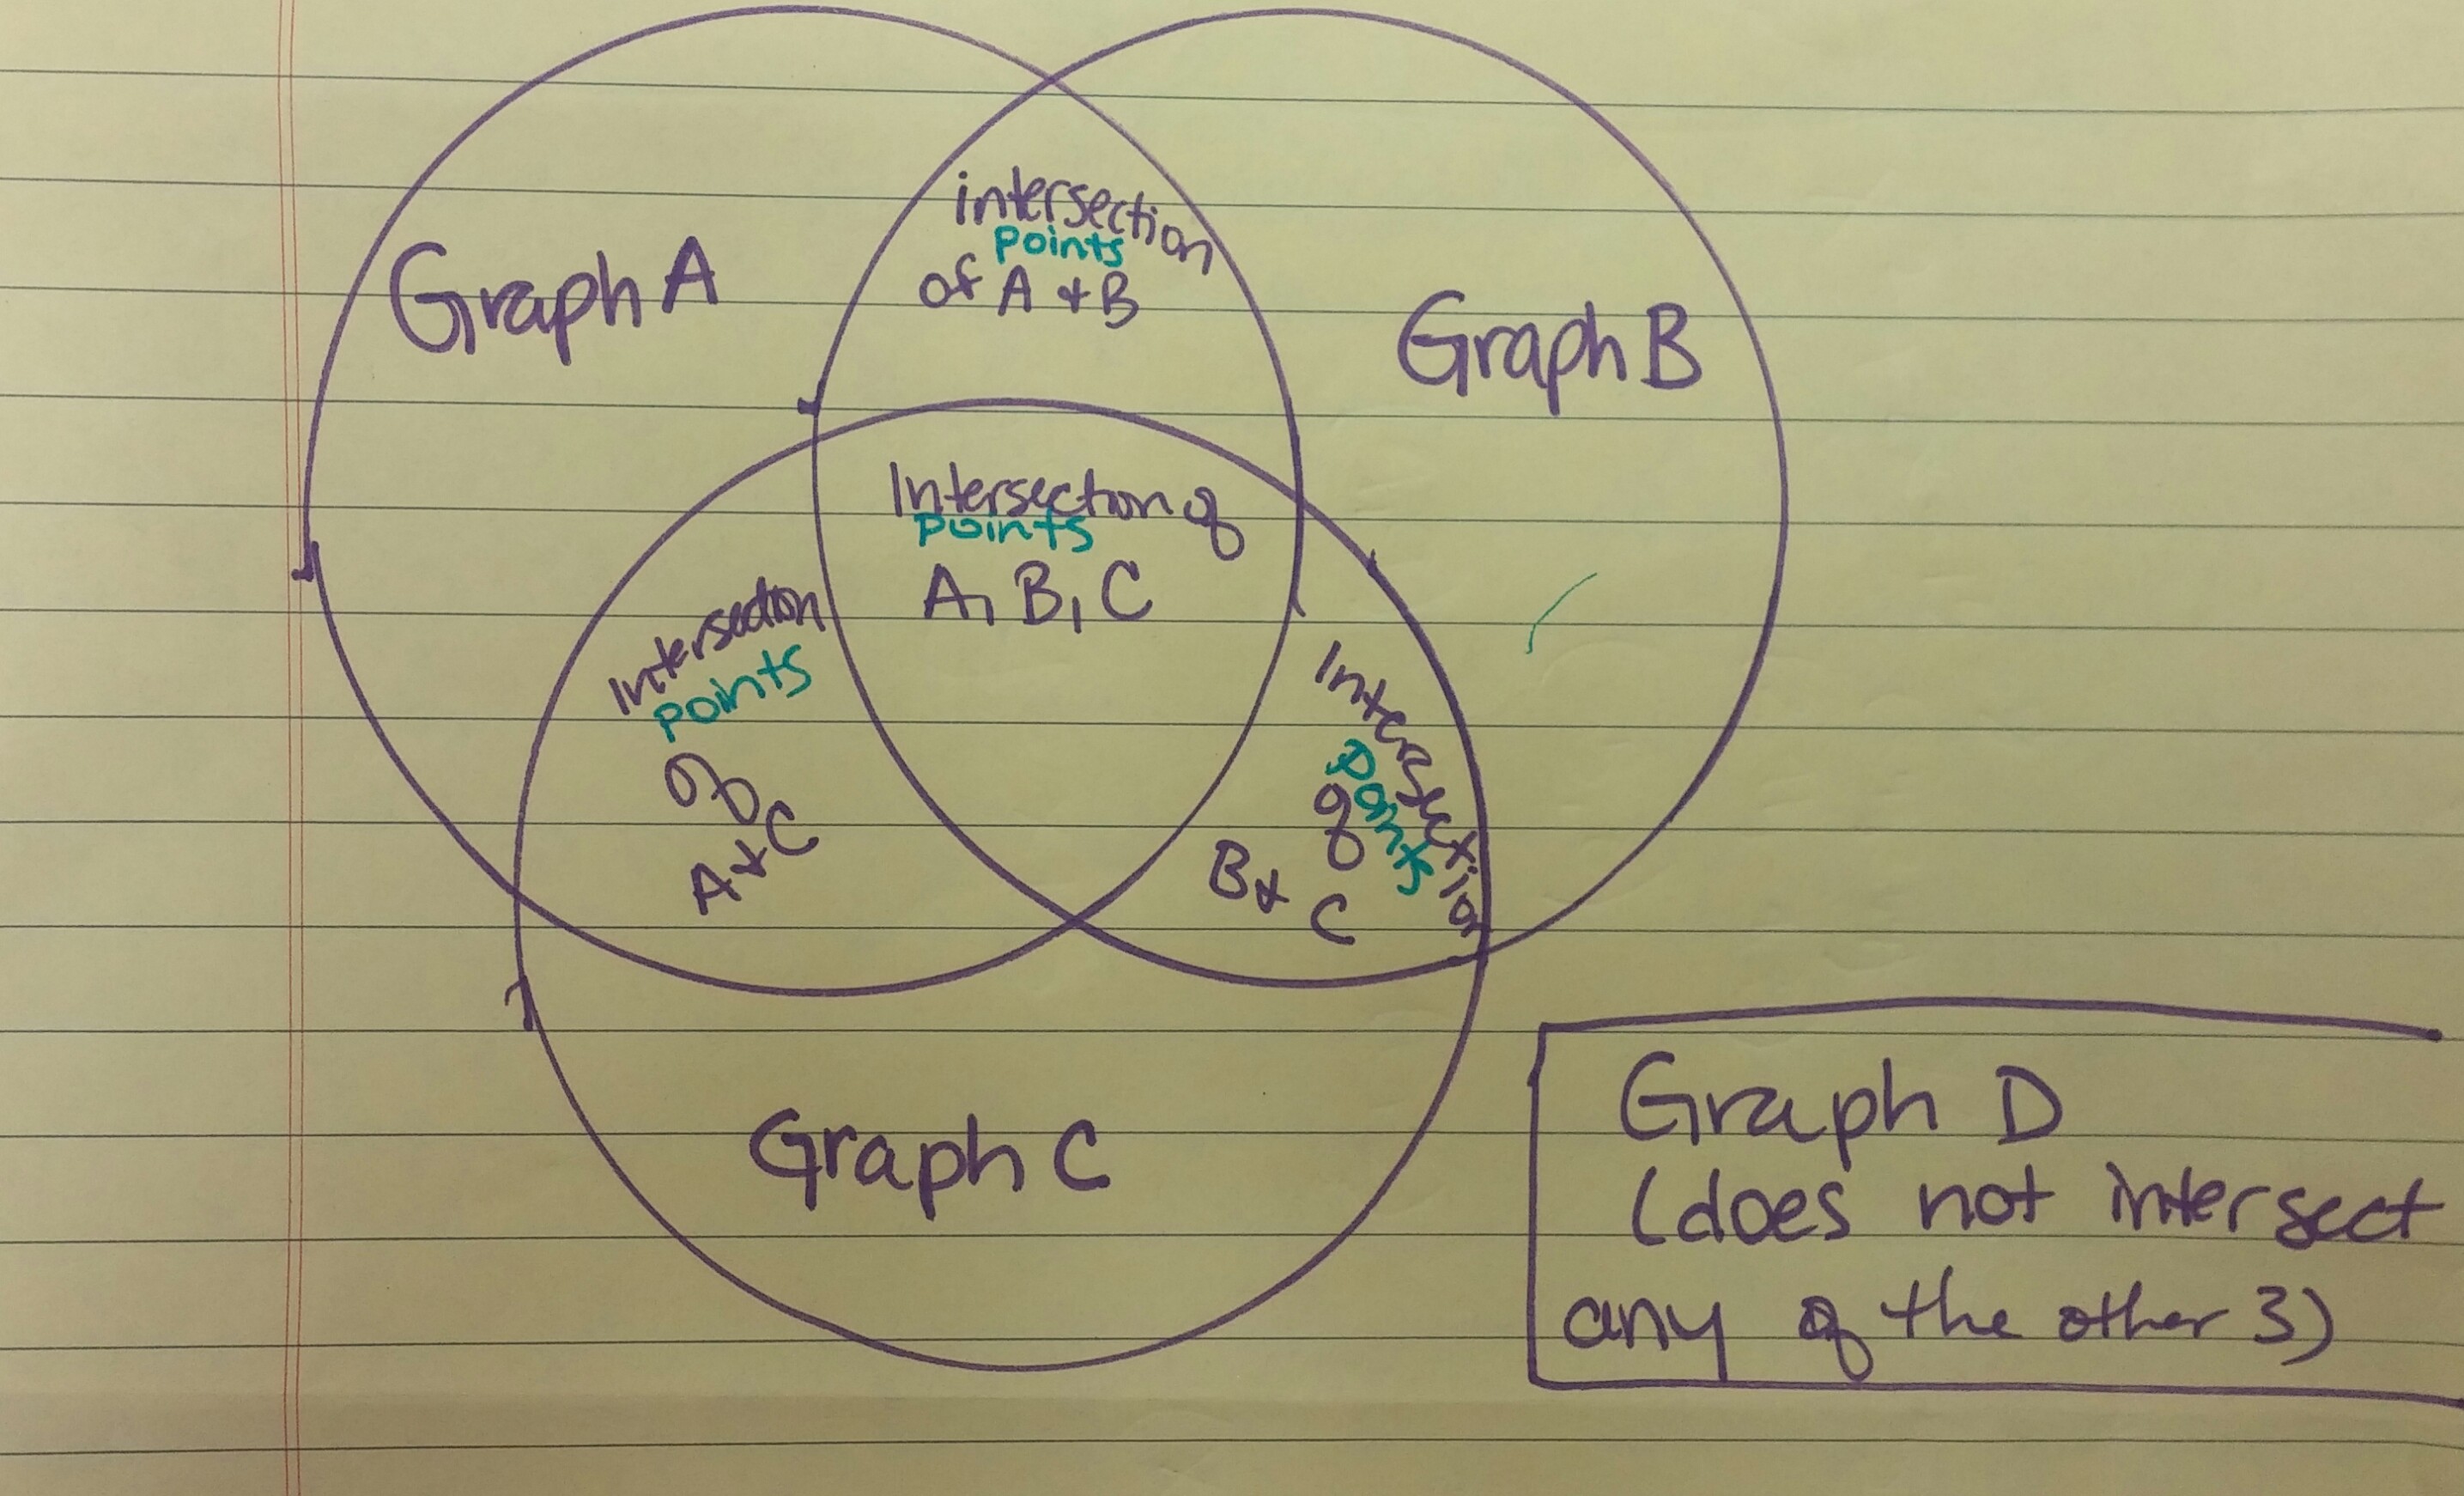 intersection
points
of A + B
Graph A
Graph B
Intersection of
points
A, B, C
Intersection
points
of
A + C
Intersection
points
of
B +
C
Graph C
Graph D
(does not intersect
any of the other 3)